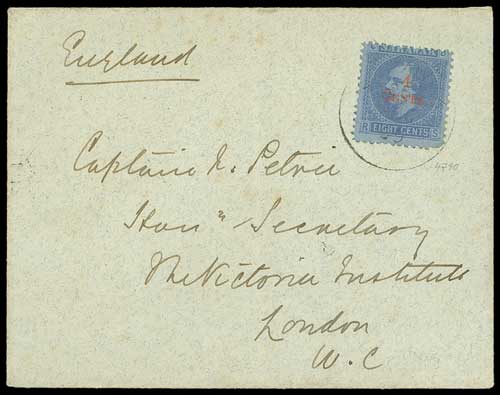 England
4
CENTS.
R EIGHT CENTS S
Captain F. Petrie
Hon^r Secretary
The Victoria Institute
London
W. C
4790